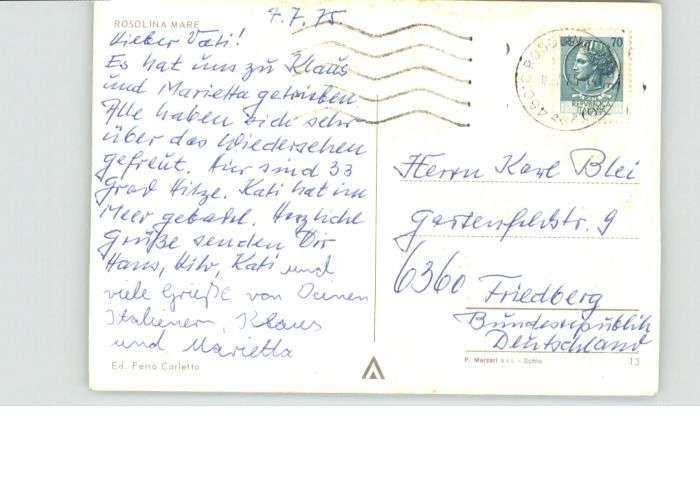 7.7.75
ROSOLINA MARE
Lieber Vati!
Es hat uns zu Klaus
und Marietta getrieben.
Alle haben sich sehr
über das Wiedersehen
gefreut. Hier sind 33
Grad Hitze. Kati hat im
Meer gebadet. Herzliche
Grüße senden Dir
Hans, Kati und
viele Grüße von Deinen
Italienern, Klaus
und Marietta
Ed. Ferro Carletto
70
Herrn Karl Blei
Gartenfeldstr. 9
6360 Friedberg
Bundesrepublik
Deutschland
13